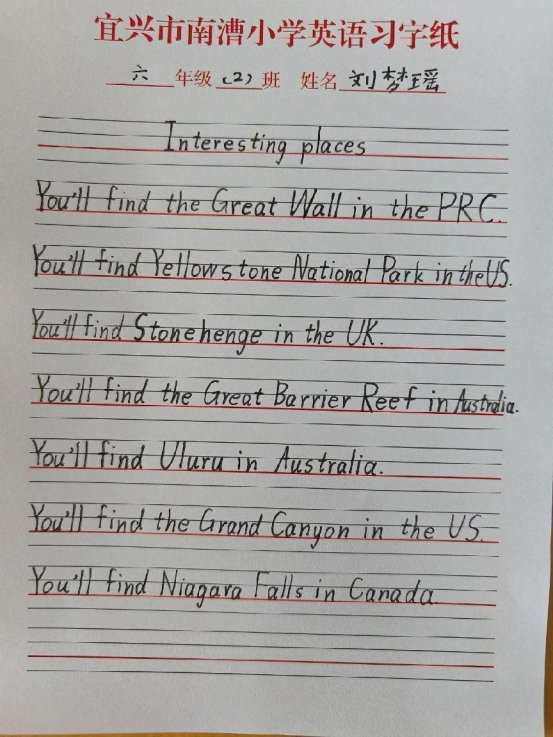 宜兴市南漕小学英语习字纸
六 年级 (2) 班 姓名 刘梦瑶
Interesting places
You'll find the Great Wall in the PRC.
You'll find Yellowstone National Park in the US.
You'll find Stonehenge in the UK.
You'll find the Great Barrier Reef in Australia.
You'll find Uluru in Australia.
You'll find the Grand Canyon in the US.
You'll find Niagara Falls in Canada